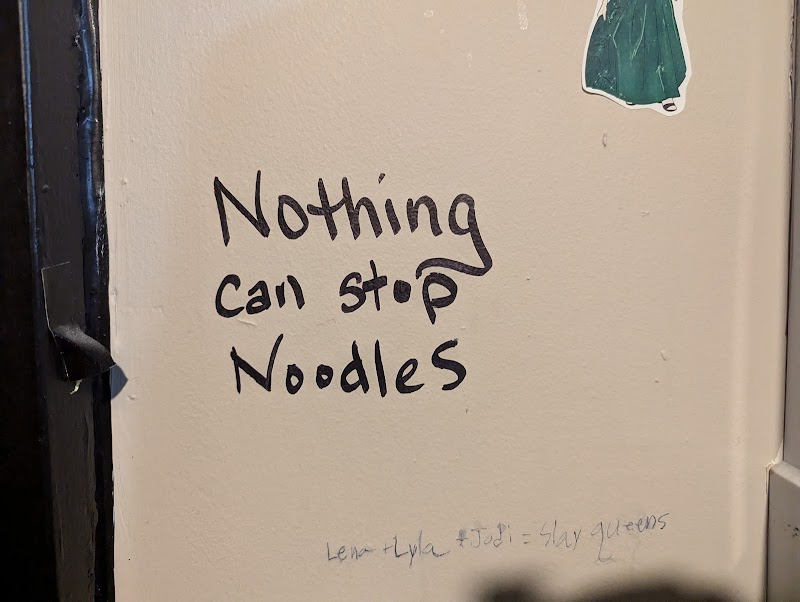 Nothing
can stop
Noodles
Lena + Lyla + Jodi = Slay queens